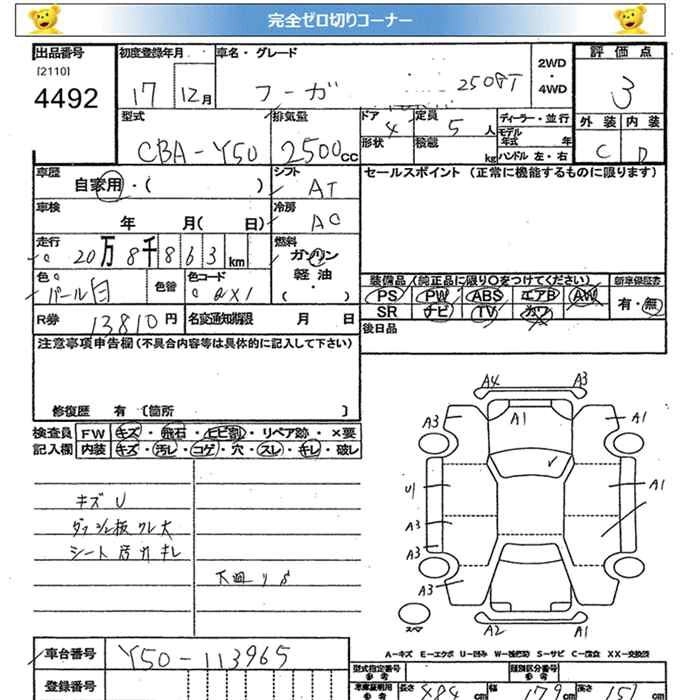 完全ゼロ切りコーナー
出品番号 初度登録年月 車名・グレード 2WD・4WD 評価点
[2110]
4492 17 12月 フーガ 250GT 3
型式 排気量 ドア 定員 ディーラー・並行 外装 内装
CBA-Y50 2500cc 4 5人 モデル年式 年 C D
形状 積載 kg ハンドル 左・右
車歴 シフト セールスポイント (正常に機能するものに限ります)
自家用・( ) AT
車検 冷房
年 月( 日) AC
走行 燃料
20万8千863km ガソリン
軽油
・( )
色 色替 色コード 装備品(純正品に限り○をつけてください) 新車保証書
パール白 QX1 PS PW ABS エアB AW 有・無
SR ナビ TV カワ
R券 13810円 名変通知期限 月 日 後日品
注意事項申告欄(不具合内容等は具体的に記入して下さい)
修復歴 有 〔箇所 〕
検査員 FW キズ・飛石・ヒビ割・リペア跡・×要
記入欄 内装 キズ・汚レ・コゲ・穴・スレ・キレ・破レ
キズ U
シート 汚 キレ
A4 A3
A3 A1 A1
U1 A1
A3
A3
A3
スペア A2 A1
A-キズ E-エクボ U-凹み W-補修跡 S-サビ C-腐食 XX-交換済
車台番号 Y50-113965
型式指定番号 参考 類別区分番号 参考
登録番号 車庫証明用 参考 長さ 484cm 幅 179cm 高さ 151cm